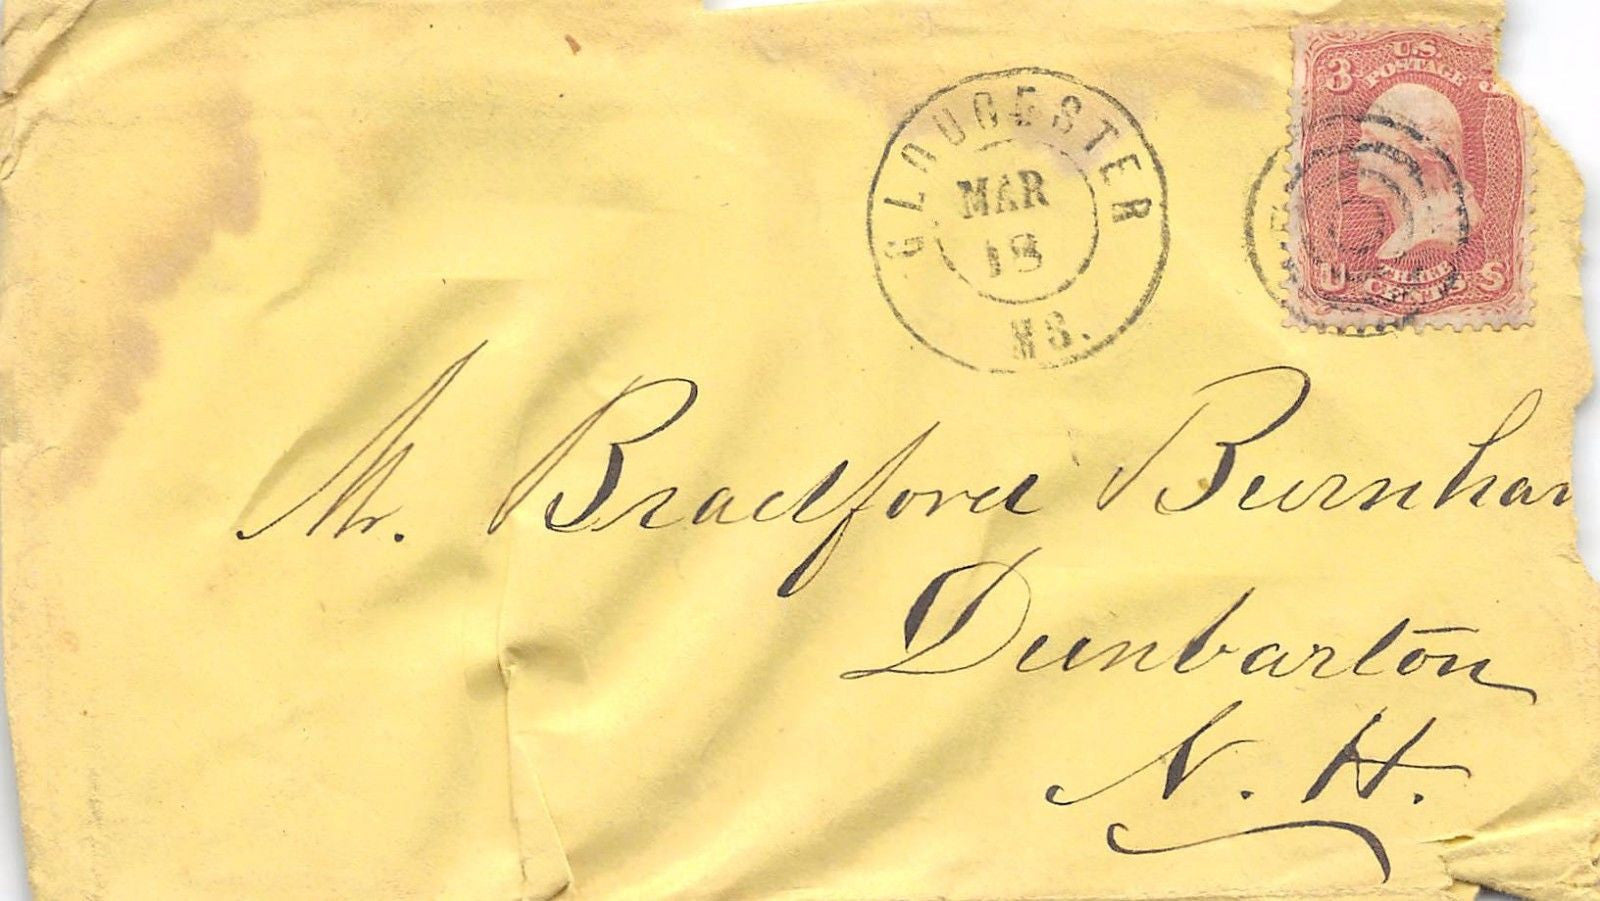 GLOUCESTER
MAR
18
MS.
U.S.
POSTAGE
3
U CENTS S
Mr. Bradford Burnham
Dunbarton
N. H.